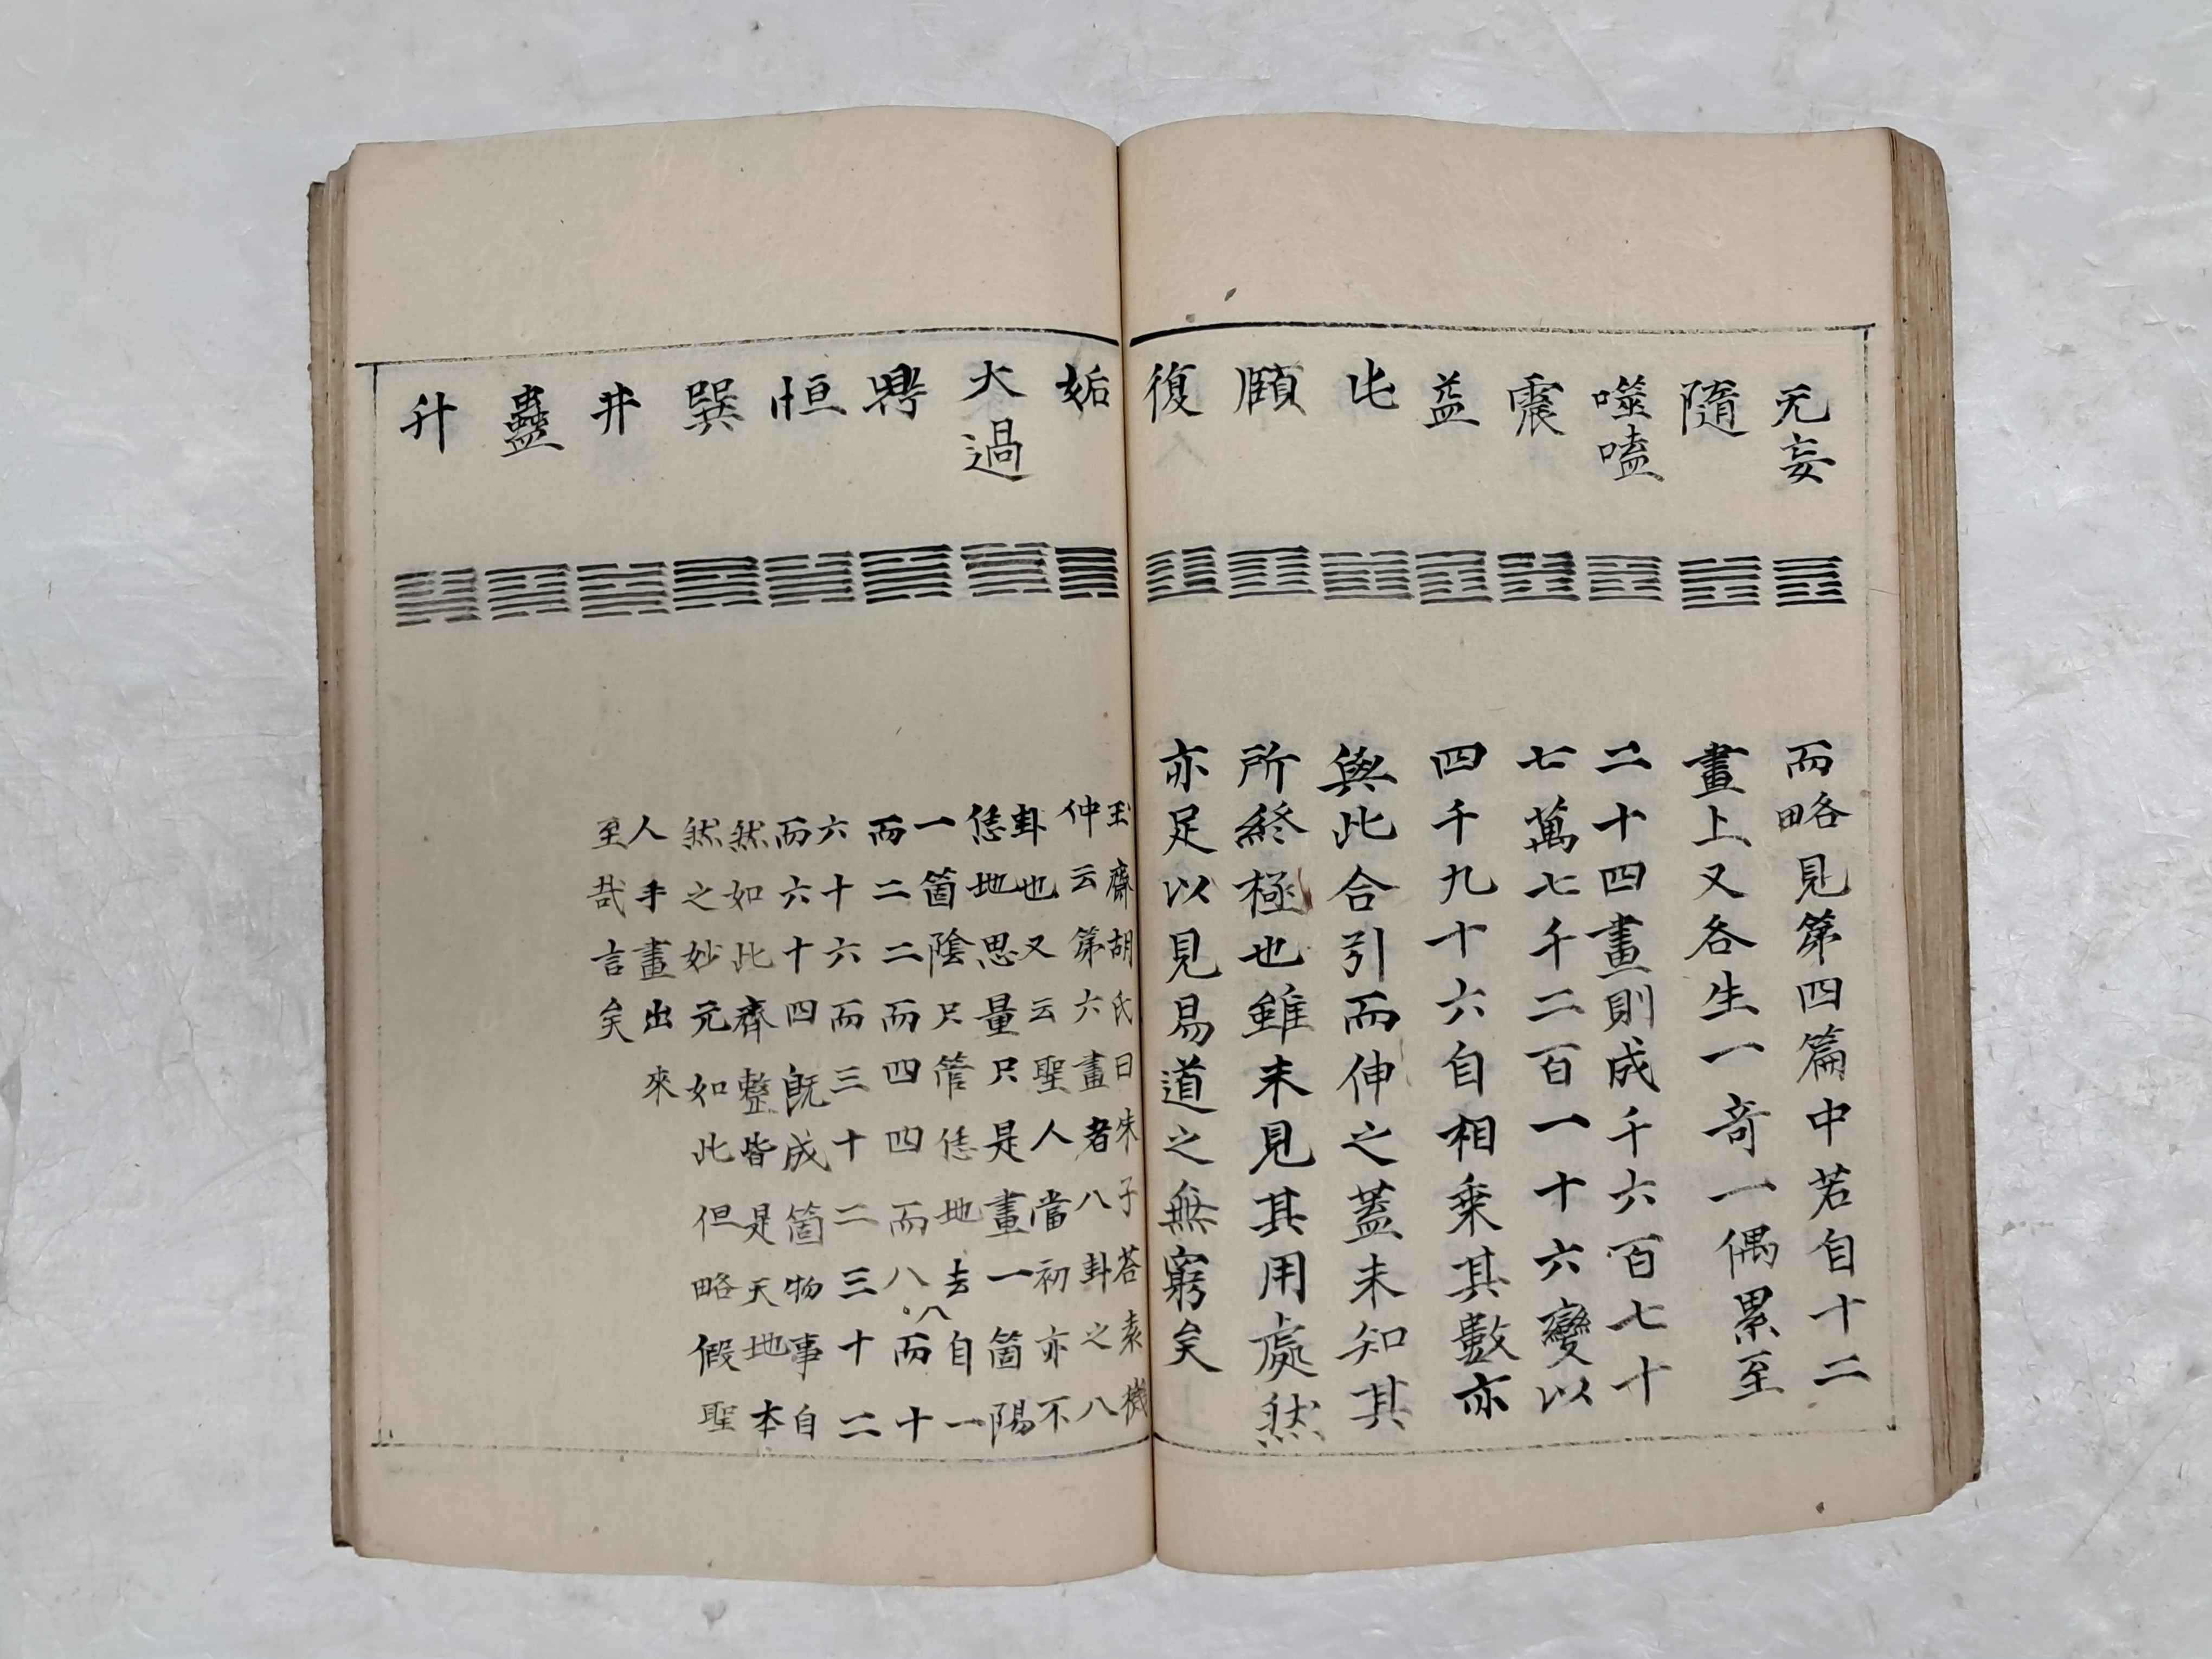 无妄
隨
噬嗑
震
益
屯
頤
復
而略見第四篇中若自十二
畫上又各生一奇一偶累至
二十四畫則成千六百七十
七萬七千二百一十六變以
四千九十六自相乗其數亦
與此合引而伸之蓋未知其
所終極也雖未見其用處然
亦足以見易道之無窮矣
姤
大過
鼎
恒
巽
井
蠱
升
玉齋胡氏曰朱子荅袁機
仲云第六畫者八卦之八
卦也又云聖人當初亦不
恁地思量只是畫一箇陽
一箇陰只管恁地去自一
而二二而四四而八八而十
六十六而三十二三十二
而六十四既成箇物事自
然如此齊整皆是天地本
然之妙元如此但略假聖
人手畫出來
至哉言矣